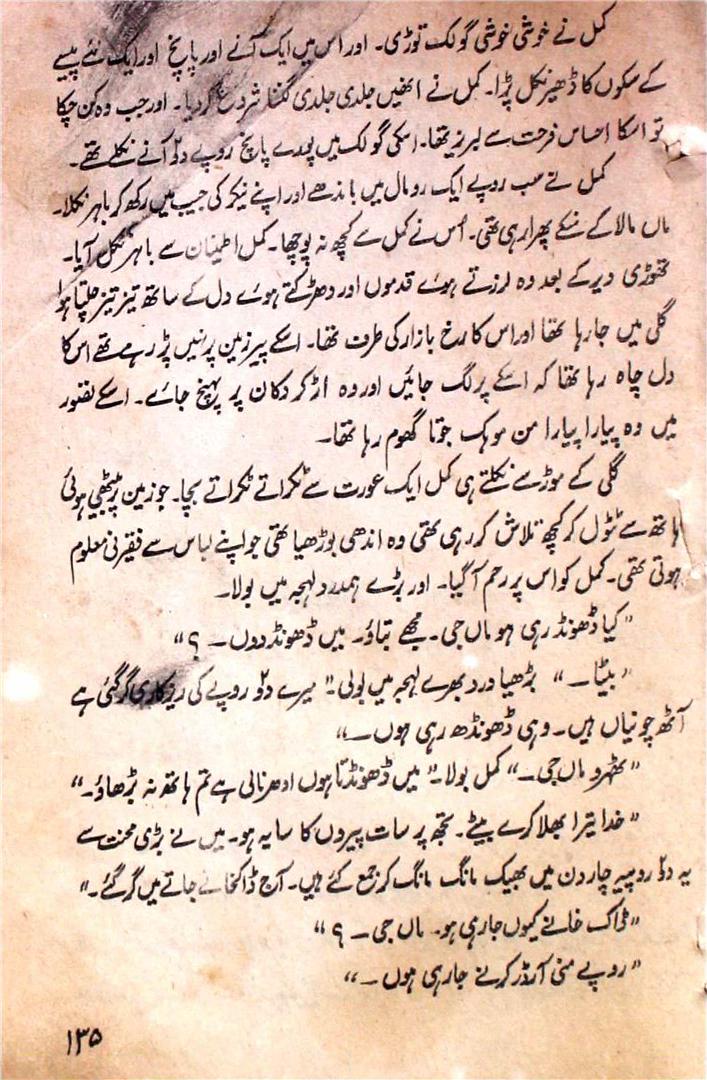 کمل نے خوشی خوشی گولک توڑی۔ اور اس میں ایک آنے اور پانچ اور ایک نئے پیسے
کے سکوں کا ڈھیر نکل پڑا۔ کمل نے انھیں جلدی جلدی گننا شروع کر دیا۔ اور جب وہ گن چکا
تو اسکا احساس فرحت سے لبریز تھا۔ اسکی گولک میں پورے پانچ روپے دو آنے نکلے تھے۔
کمل نے سب روپے ایک رومال میں باندھے اور اپنے نیکر کی جیب میں رکھ کر باہر نکلا۔
ماں مالا کے منکے پھرا رہی تھی۔ اُس نے کمل سے کچھ نہ پوچھا۔ کمل اطمینان سے باہر نکل آیا۔
تھوڑی دیر کے بعد وہ لرزتے ہوئے قدموں اور دھڑکتے ہوئے دل کے ساتھ تیز تیز چلتا ہوا
گلی میں جا رہا تھا اور اس کا رخ بازار کی طرف تھا۔ اسکے پیر زمین پر نہیں پڑ رہے تھے اس کا
دل چاہ رہا تھا کہ اسکے پر لگ جائیں اور وہ اڑ کر دکان پر پہنچ جائے۔ اسکے تصور
میں وہ پیارا پیارا من موہک جوتا گھوم رہا تھا۔
گلی کے موڑ سے نکلتے ہی کمل ایک عورت سے ٹکراتے ٹکراتے بچا۔ جو زمین پر بیٹھی ہوئی
ہاتھ سے ٹٹول کر کچھ تلاش کر رہی تھی وہ اندھی بوڑھیا تھی جو اپنے لباس سے فقیرنی معلوم
ہوتی تھی۔ کمل کو اس پر رحم آ گیا۔ اور بڑے ہمدرد لہجہ میں بولا۔
"کیا ڈھونڈ رہی ہو ماں جی۔ مجھے بتاؤ۔ میں ڈھونڈ دوں۔ ؟"
"بیٹا۔" بڑھیا درد بھرے لہجہ میں بولی۔" میرے دو روپے کی ریزکاری گر گئی ہے
آٹھ چونیاں ہیں۔ وہی ڈھونڈھ رہی ہوں۔"
"ٹھہرو ماں جی۔" کمل بولا۔" میں ڈھونڈتا ہوں ادھر نالی ہے تم ہاتھ نہ بڑھاؤ۔"
"خدا تیرا بھلا کرے بیٹے۔ تجھ پر سات پیروں کا سایہ ہو۔ میں نے بڑی محنت سے
یہ دو روپیہ چار دن میں بھیک مانگ مانگ کر جمع کئے ہیں۔ آج ڈاکخانے جاتے میں گر گئے۔"
"ڈاک خانے کیوں جا رہی ہو۔ ماں جی۔ ؟"
"روپے منی آرڈر کرنے جا رہی ہوں۔"
۱۳۵